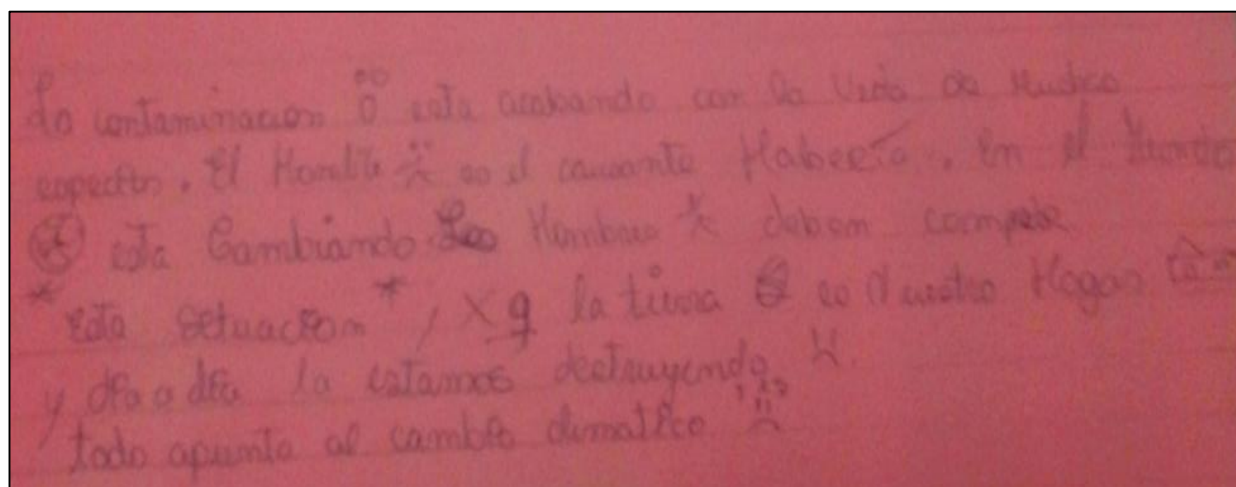 La contaminacion esta acabando con la Vida de Muchas
especies. El Hombre es el causante. En el Mundo
esta Cambiando. Los Hombres deben
esta setuacion, x q la tierra es Nuestro Hogar
y dia a dia la estamos destruyendo.
todo apunta al cambio climatico